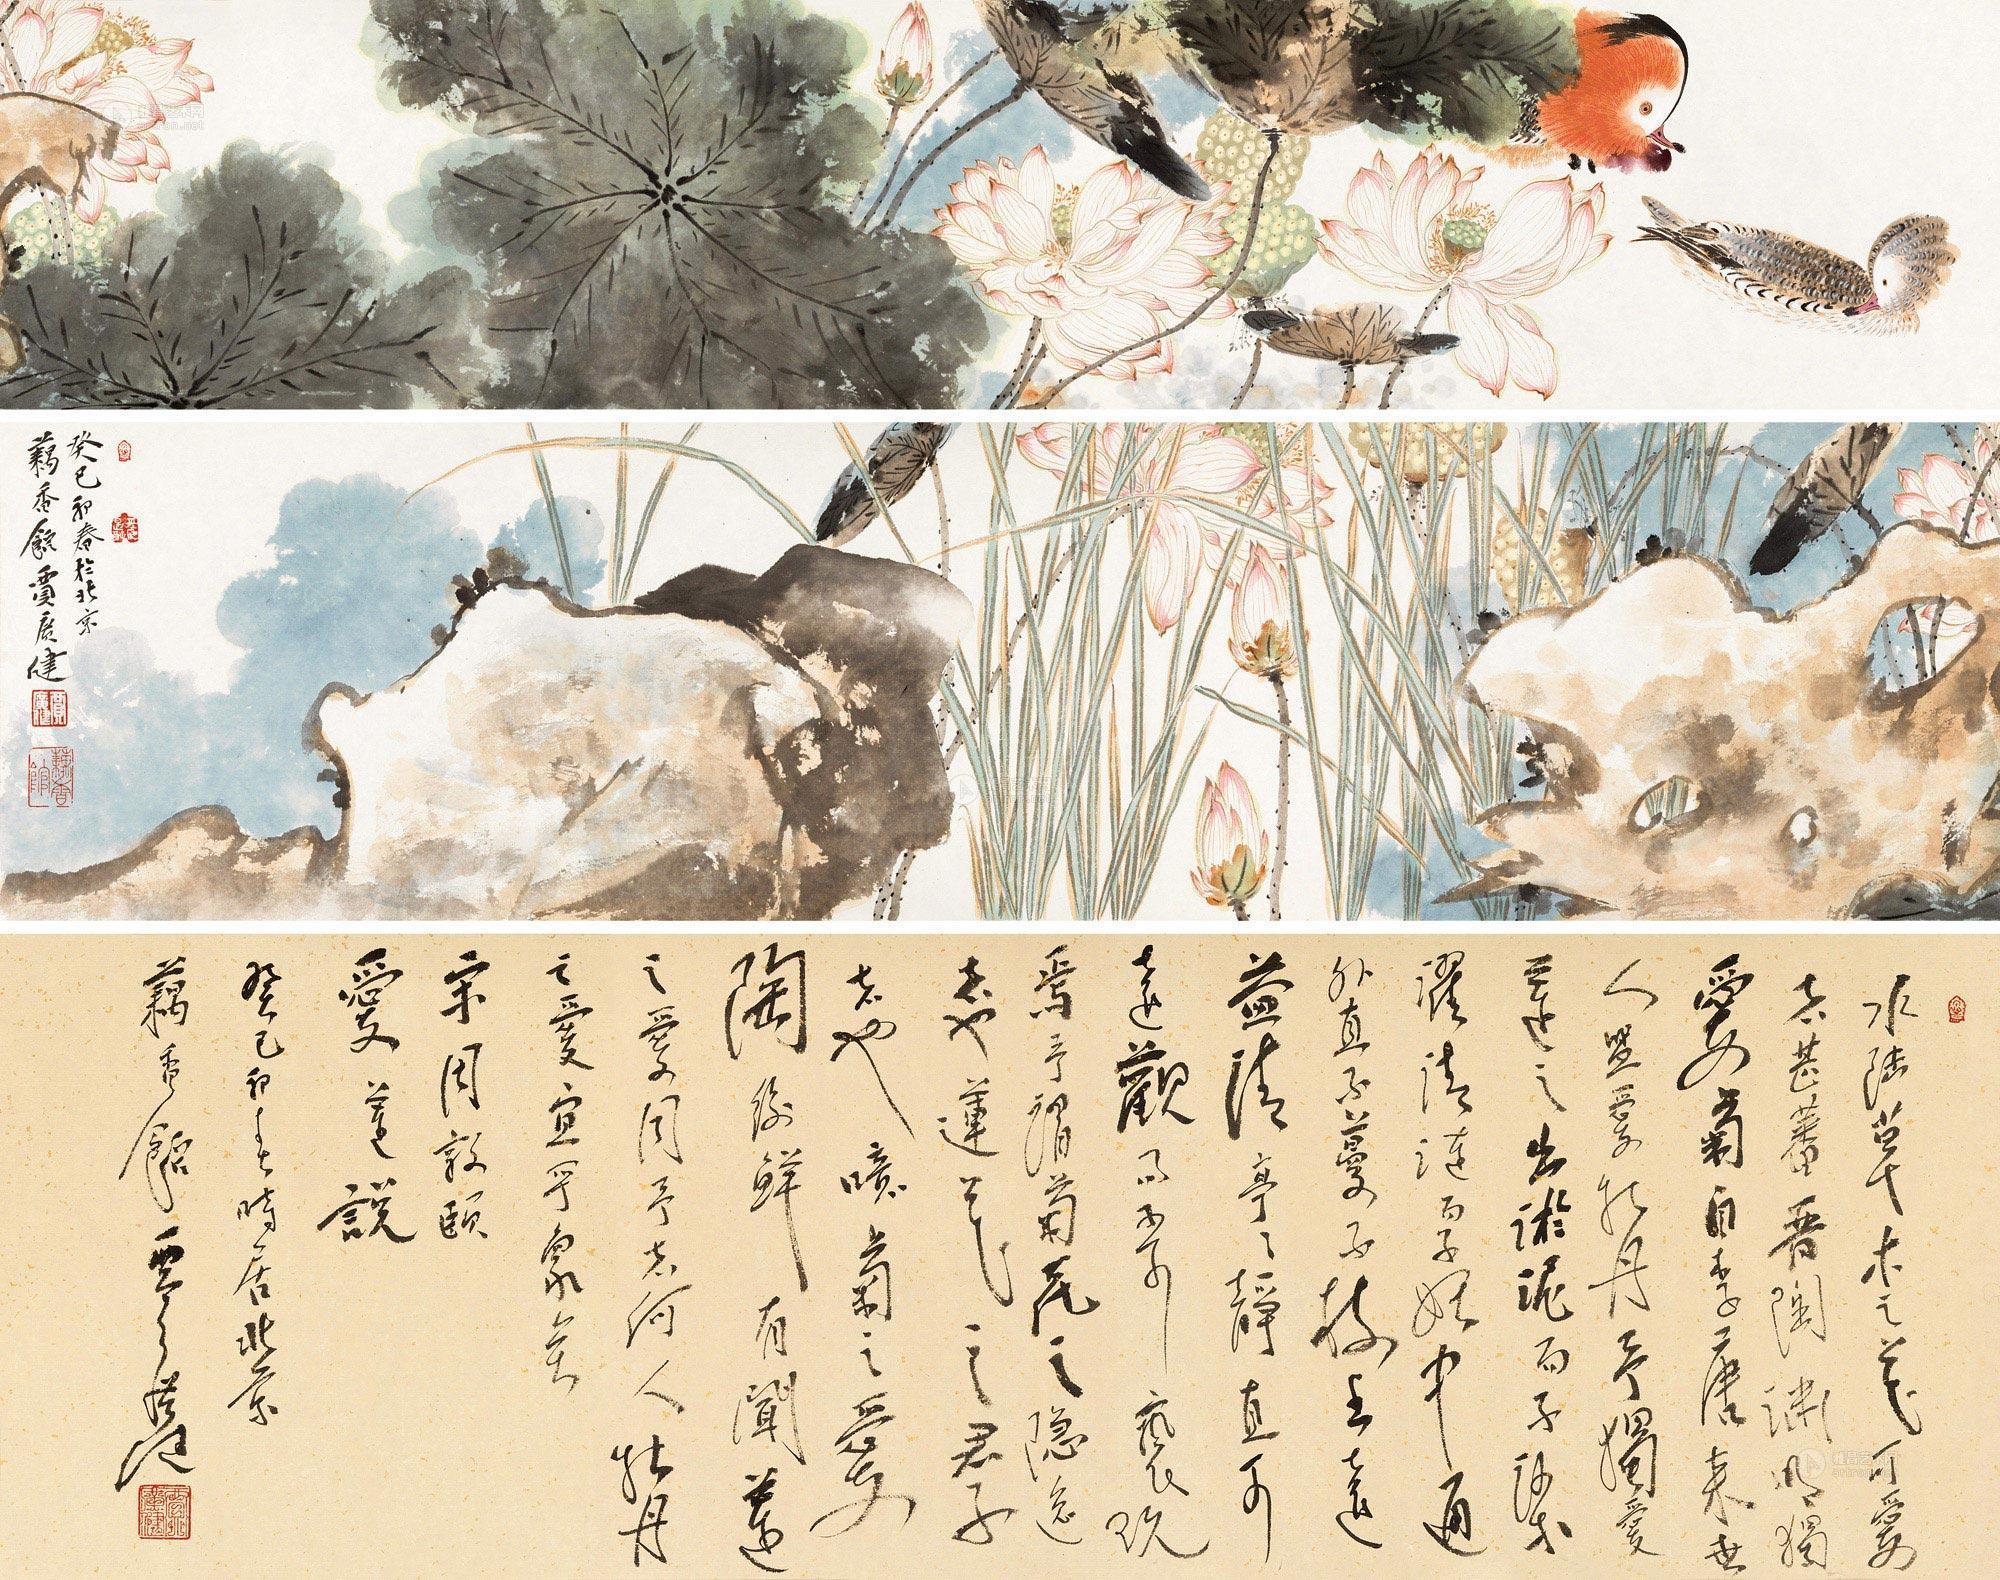 癸巳初春於北京
藕香館賈廣健
水陸草木之花可愛
者甚蕃晉陶淵明獨
愛菊自李唐来世
人盛愛牡丹予獨愛
蓮之出淤泥而不染
濯清漣而不妖中通
外直不蔓不枝香遠
益清亭亭靜直可
遠觀而不可褻玩
焉予謂菊花之隐逸
者也蓮花之君子
者也噫菊之愛
陶後鮮有聞蓮
之愛同予者何人牡丹
之愛宜乎衆矣
宋周敦頤
愛蓮説
癸巳初春時居北京
藕香館賈廣健